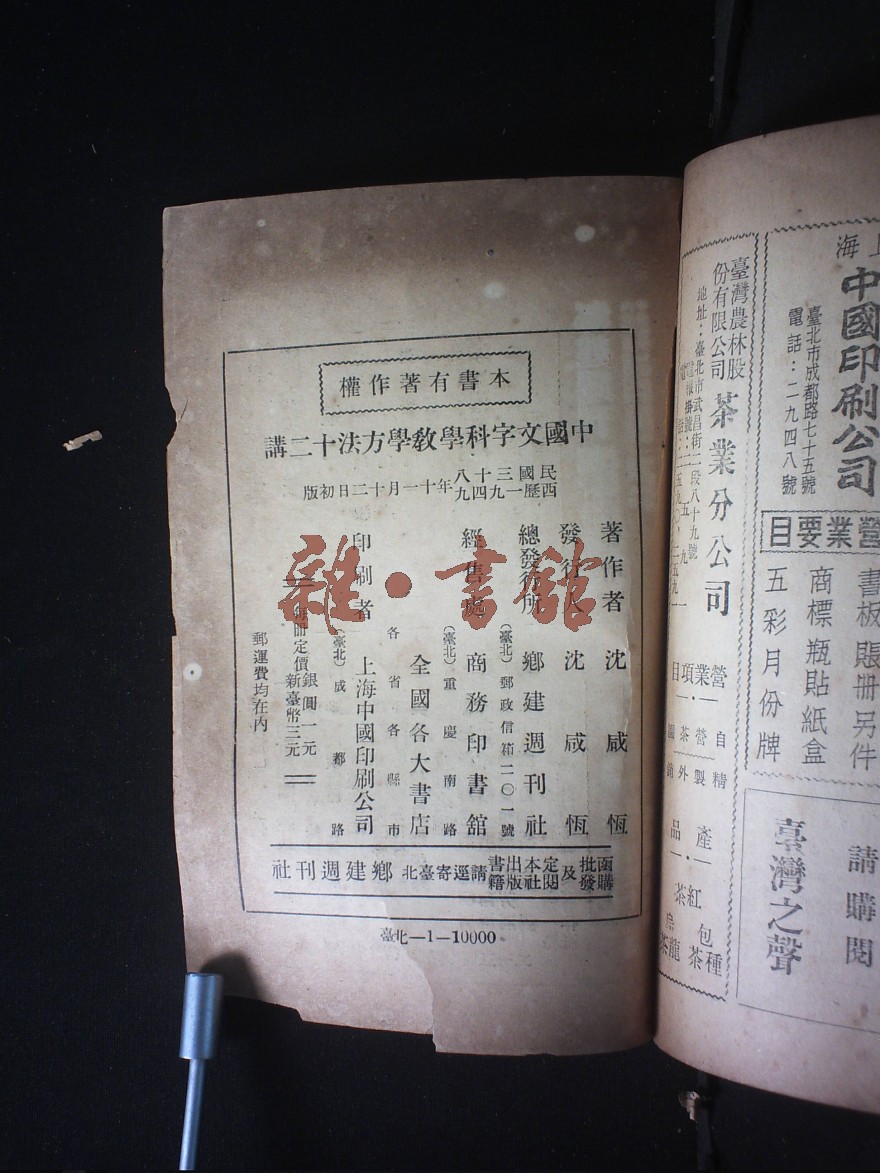 本書有著作權
中國文字科學教學方法十二講
民國三十八年十一月十二日初版
西歷一九四九
著作者 沈咸恆
發行人 沈咸恆
總發行所 鄉建週刊社
(臺北)郵政信箱二〇一號
經售處 商務印書舘
(臺北)重慶南路
全國各大書店
各省各縣市
印刷者 上海中國印刷公司
(臺北)成都路
每冊定價銀圓一元
新臺幣三元
郵運費均在內
函購批發及定閱本社出版書籍請逕寄臺北鄉建週刊社
臺北—1—10000
雜·書館
上海
中國印刷公司
臺北市成都路七十五號
電話:二九四八號
營業要目
書板賬冊另件
商標瓶貼紙盒
五彩月份牌
請購閱
臺灣之聲
臺灣農林股
份有限公司
茶業分公司
地址:臺北市武昌街二段八十九號
營業項目
自營茶園
精製外銷
產品
紅茶
包種茶
烏龍茶